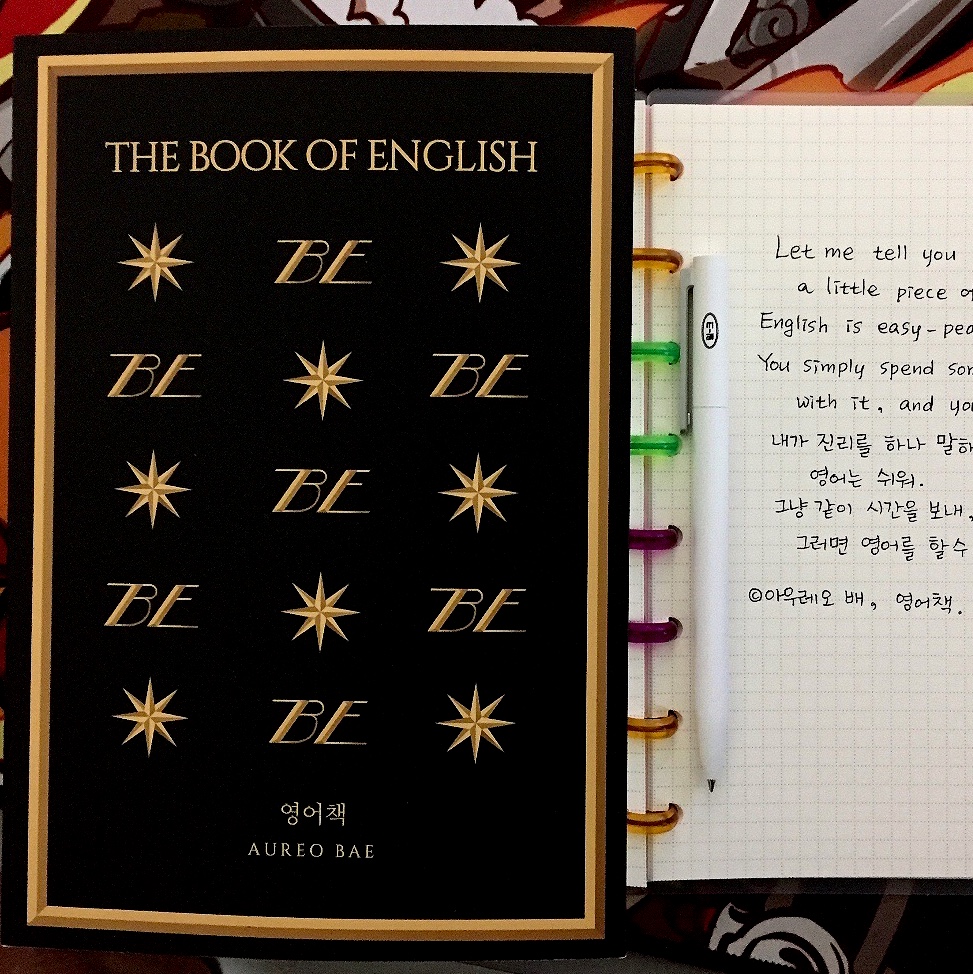 THE BOOK OF ENGLISH
BE
BE BE
BE
BE BE
BE
영어책
AUREO BAE
Let me tell you
a little piece
English is easy-pea
You simply spend
with it, and you
내가 진리를 하나 말하
영어는 쉬워.
그냥 같이 시간을 보내,
그러면 영어를 할 수
©아우레오 배, 영어책.